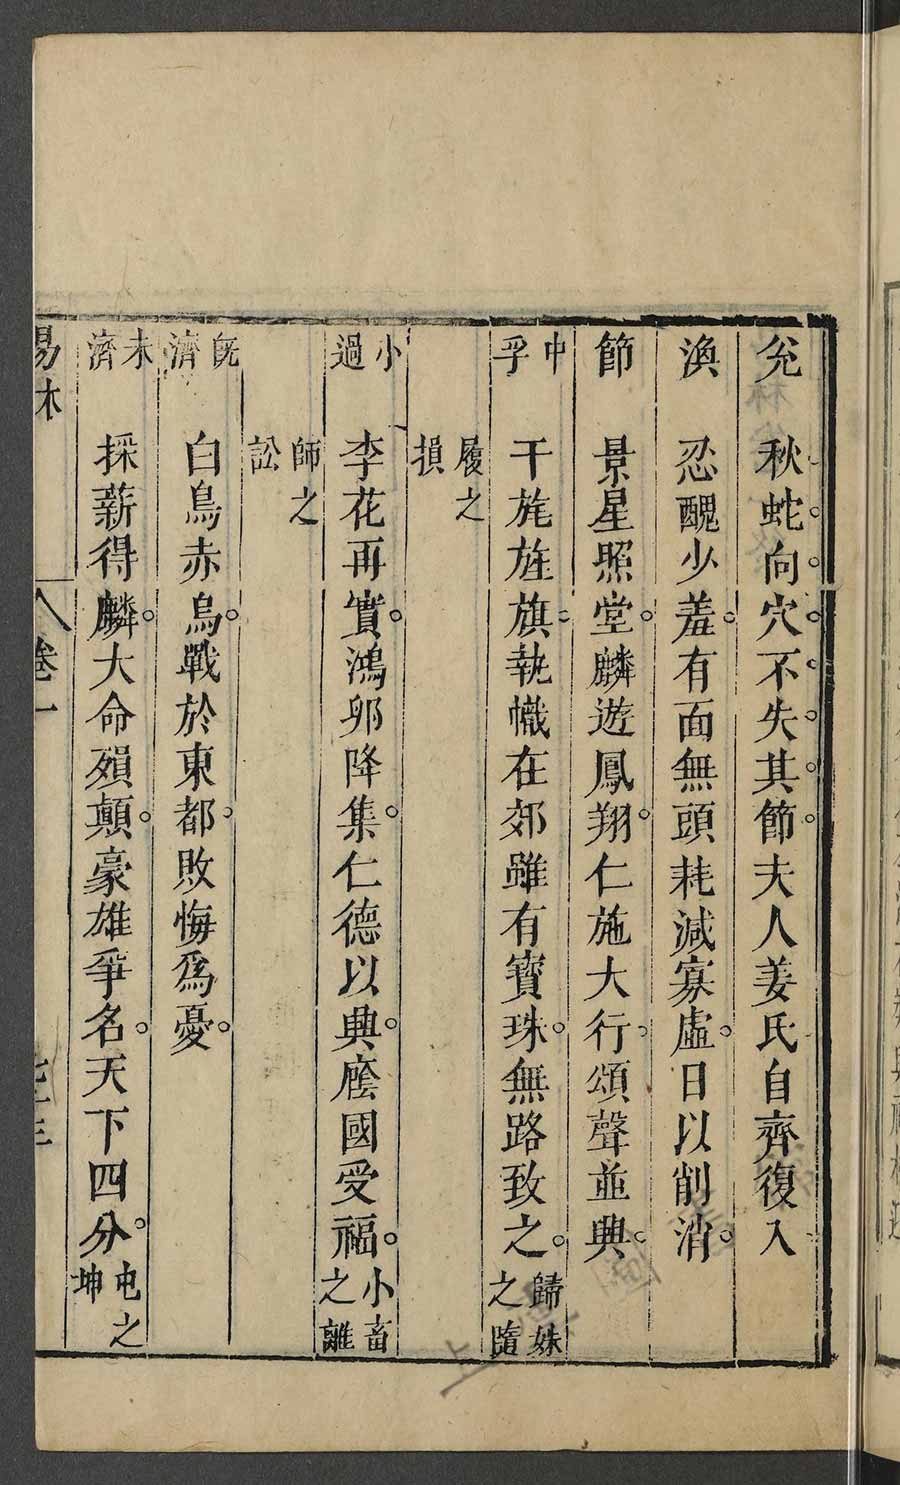 兊　秋蛇向穴不失其節夫人姜氏自齊復入
渙　忍醜少羞有面無頭耗減寡虛日以削消
節　景星照堂麟遊鳳翔仁施大行頌聲並興
中孚　干旄旌旗執幟在郊雖有寶珠無路致之歸妹之隨
履之損
小過　李花再實鴻卵降集仁德以興廕國受福小畜之離
師之訟
旣濟　白烏赤烏戰於東都敗悔爲憂
未濟　採薪得麟大命殞顚豪雄爭名天下四分屯之坤
易林　卷一